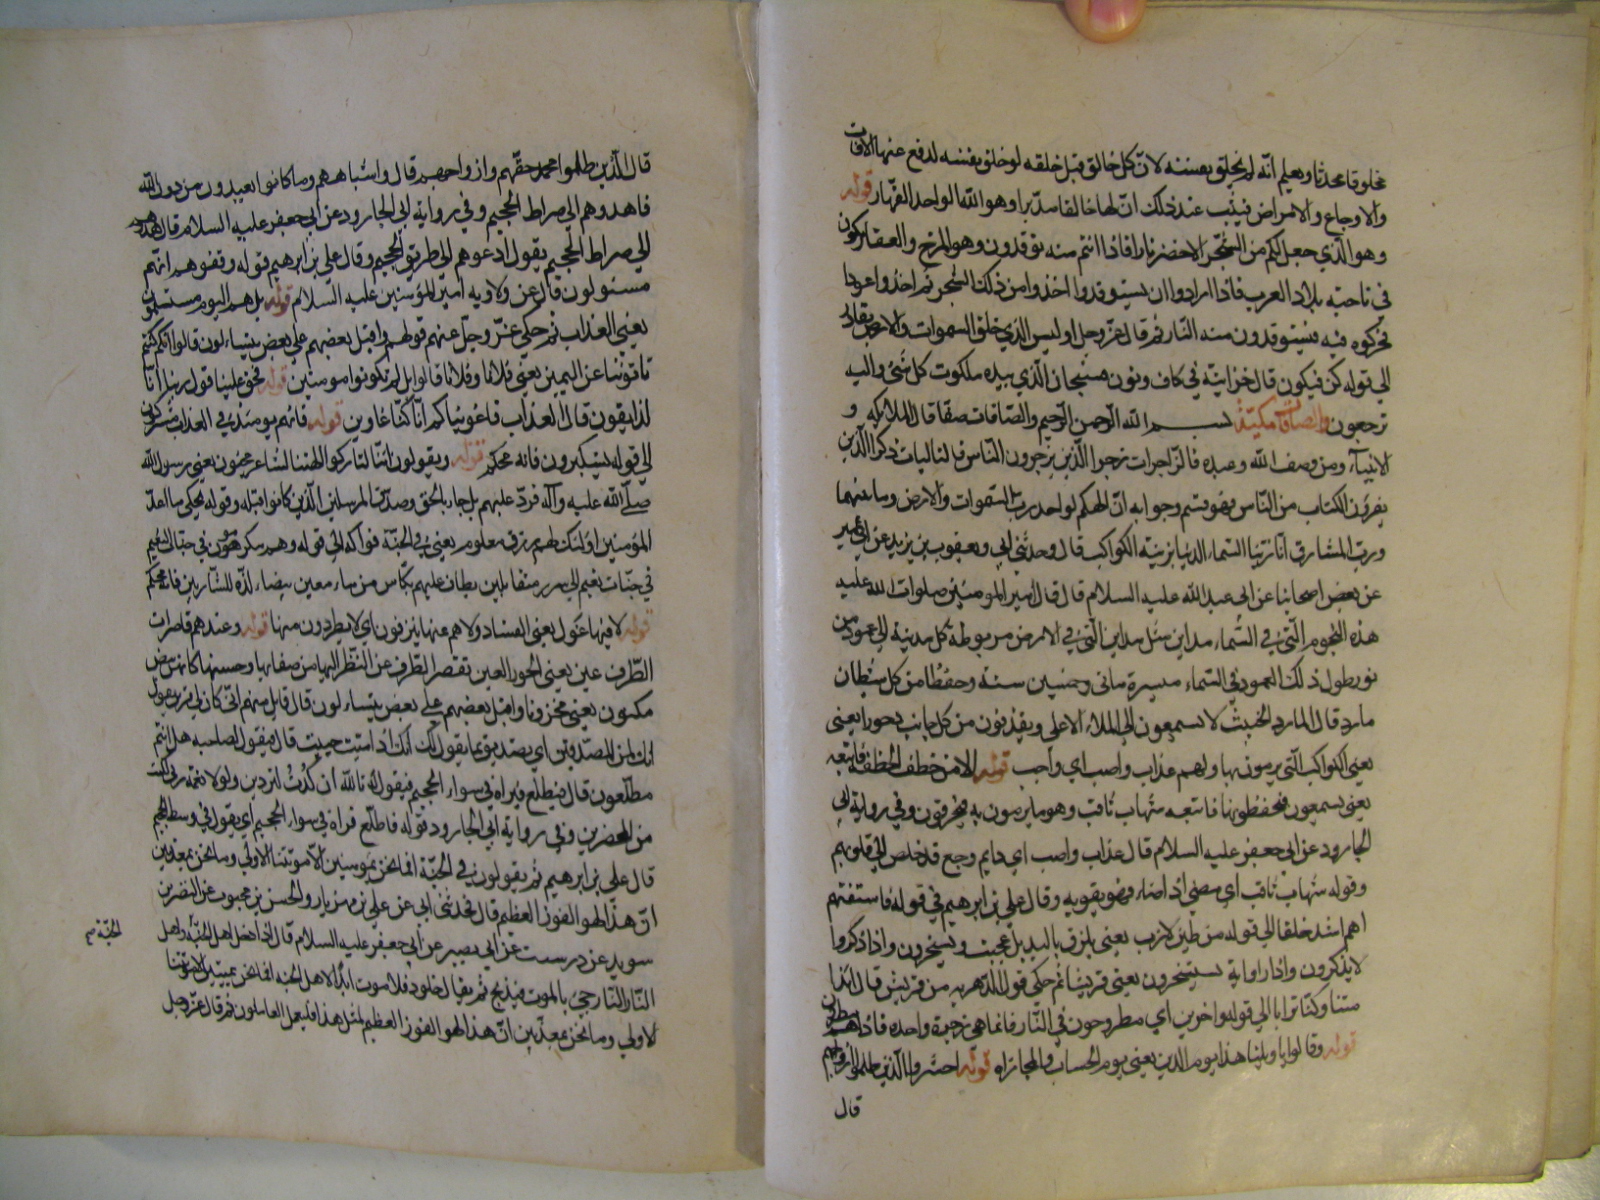 مخلوقا محدثا ويعلم انّه لم يخلق بنفسه لانّ كل خالق قبل خلقه لو خلق بنفسه لدفع عنها الافات
والاوجاع والامراض فيثبت عند ذلك انّ لها خالقا مدبرا وهو اللّه الواحد القهّار قوله
وهو الّذي جعل لكم من الشّجر الاخضر نارا فاذا انتم منه توقدون وهو المرخ والعفار يكون
في ناحية بلاد العرب فاذا ارادوا ان يستوقدوا اخذوا من ذلك الشجر ثم اخذوا عودا
فحركوه فيه فيستوقدون منه النّار ثم قال عزّوجل اوليس الّذي خلق السموات والارض بقادر
الي قوله كن فيكون قال خزاينه في كاف ونون فسبحان الّذي بيده ملكوت كل شئ واليه
ترجعون والصافات مكيّة بسم الله الرحمن الرّحيم والصّافات صفّا قال الملائكه و
الانبياء ومن وصف اللّه وعبده فالزّاجرات زجرا الّذين يزجرون النّاس فالتاليات ذكرا الّذين
يقرءون الكتاب من النّاس فهو قسم وجوابه انّ الهكم لواحد ربّ السّموات والارض وما بينهما
وربّ المشارق انّا زيّنا السّماء الدنيا بزينة الكواكب قال وحدّثني ابي ويعقوب بن يزيد عن ابن ابي عمير
عن بعض اصحابنا عن ابي عبد اللّه عليه السلام قال قال امير المومنين صلوات اللّه عليه
هذه النجوم الّتي في السّماء مداين مثل مداين الّتي في الارض مربوطة كل مدينة الي عمود من
نور طول ذلك العمود في السّماء مسيرة ماتي وخمسين سنة وحفظا من كل شيطان
مارد قال المارد الخبيث لا يسمعون الي الملاء الاعلي ويقذفون من كل جانب دحورا يعني
يعني الكواكب الّتي يرمون بها ولهم عذاب واصب اي واجب قوله الا من خطف الخطفة فاتبعه
يعني يسمعون فيحفظونها فاتبعه شهاب ثاقب وهو ما يرمون به فيحرقون وفي رواية ابي
الجارود عن ابي جعفر عليه السلام قال عذاب واصب اي دايم وجع قد خلص الي قلوبهم
وقوله شهاب ثاقب اي مضئ اذا ضاء فهو يقويه وقال علي بن ابرهيم في قوله فاستفتهم
اهم اشد خلقا الي قوله من طين لازب يعني يلزق باليد بل عجبت ويسخرون واذا ذكروا
لا يذكرون واذا راواية يستسخرون يعني قريشا ثم حكي قول الدّهريه من قريش قال ائذا
متنا وكنّا ترابا الي قوله داخرين اي مطروحون في النّار فانما هي زجرة واحدة فاذا هم ينظرون
قوله وقالوا يا ويلنا هذا يوم الدين يعني يوم الحساب والمجازاه قوله احشروا الّذين ظلموا وازواجهم
قال
قال الّذين ظلموا محمد حقّهم وازواجهم قال واشباههم وما كانوا يعبدون من دون اللّه
فاهدوهم الي صراط الجحيم وفي رواية ابي الجارود عن ابي جعفر عليه السلام قال فاهدوهم
الي صراط الجحيم يقول ادعوهم الي طريق الجحيم وقال علي بن ابرهيم قوله وقفوهم انّهم
مسئولون قال عن ولاية امير المؤمنين عليه السلام قوله بل هم اليوم مستسلمون
يعني العذاب ثم حكي عزّ وجلّ عنهم قولهم واقبل بعضهم علي بعض يتساءلون قالوا انّكم كنتم
تاتوننا عن اليمين يعني فلانا وفلانا قالوا بل لم تكونوا مومنين قوله فحق علينا قول ربنا انّا
لذايقون قال العذاب فاغويناكم انّا كنّا غاوين قوله فانّهم يومئذ في العذاب مشتركون
الي قوله يستكبرون فانه محكم قوله ويقولون ائنّا لتاركوا الهتنا لشاعر مجنون يعني رسول اللّه
صلّي اللّه عليه وآله فردّ عليهم بل جاء بالحق وصدّق المرسلين الّذين كانوا قبله وقوله ثم حكي ما اعدّ
المؤمنين اولئك لهم رزق معلوم يعني في الجنّة فواكه الي قوله وهم مكرمون في جنات النعيم
في جنّات نعيم الي سرر متقابلين يطاف عليهم بكأس من ماء معين بيضاء لذّة للشّاربين فانه محكم
قوله لا فيها غول يعني الفساد ولا هم عنها ينزفون اي لا يطردون منها قوله وعندهم قاصرات
الطّرف عين يعني الحور العين تقصر الطّرف عن النّظر اليها من صفائها وحسنها كانّهنّ بيض
مكنون يعني مخزونا واقبل بعضهم علي بعض يتساءلون قال قايل منهم انّي كان لي قرين يقول
ائنك لمن المصدّقين اي يصدّق بما يقول لك انك اذا متّ حييت قال فيقول لصاحبه هل انتم
مطّلعون قال فيطلع فيراه في سواء الجحيم فيقول له تاللّه ان كدت لتردين ولولا نعمة ربي لكنت
من المحضرين وفي رواية ابي الجارود قوله فاطلع فرآه في سواء الجحيم اي يقول في وسط الجحيم
قال علي بن ابرهيم ثم يقولون في الجنّة افما نحن بميتين الا موتتنا الاولي وما نحن بمعذبين
انّ هذا لهو الفوز العظيم قال فحدّثني ابي عن علي بن مهزيار والحسن بن محبوب عن النضر بن
سويد عن درست عن ابي بصير عن ابي جعفر عليه السلام قال اذا دخل اهل الجنّة واهل
النّار النّار جئ بالموت فيذبح ثم يقال خلود فلا موت ابدا لاهل الجنه افما نحن بميتين الا موتتنا
الاولي وما نحن بمعذّبين انّ هذا لهو الفوز العظيم لمثل هذا فليعمل العاملون ثم قال عزّ وجل
الجنّة صح